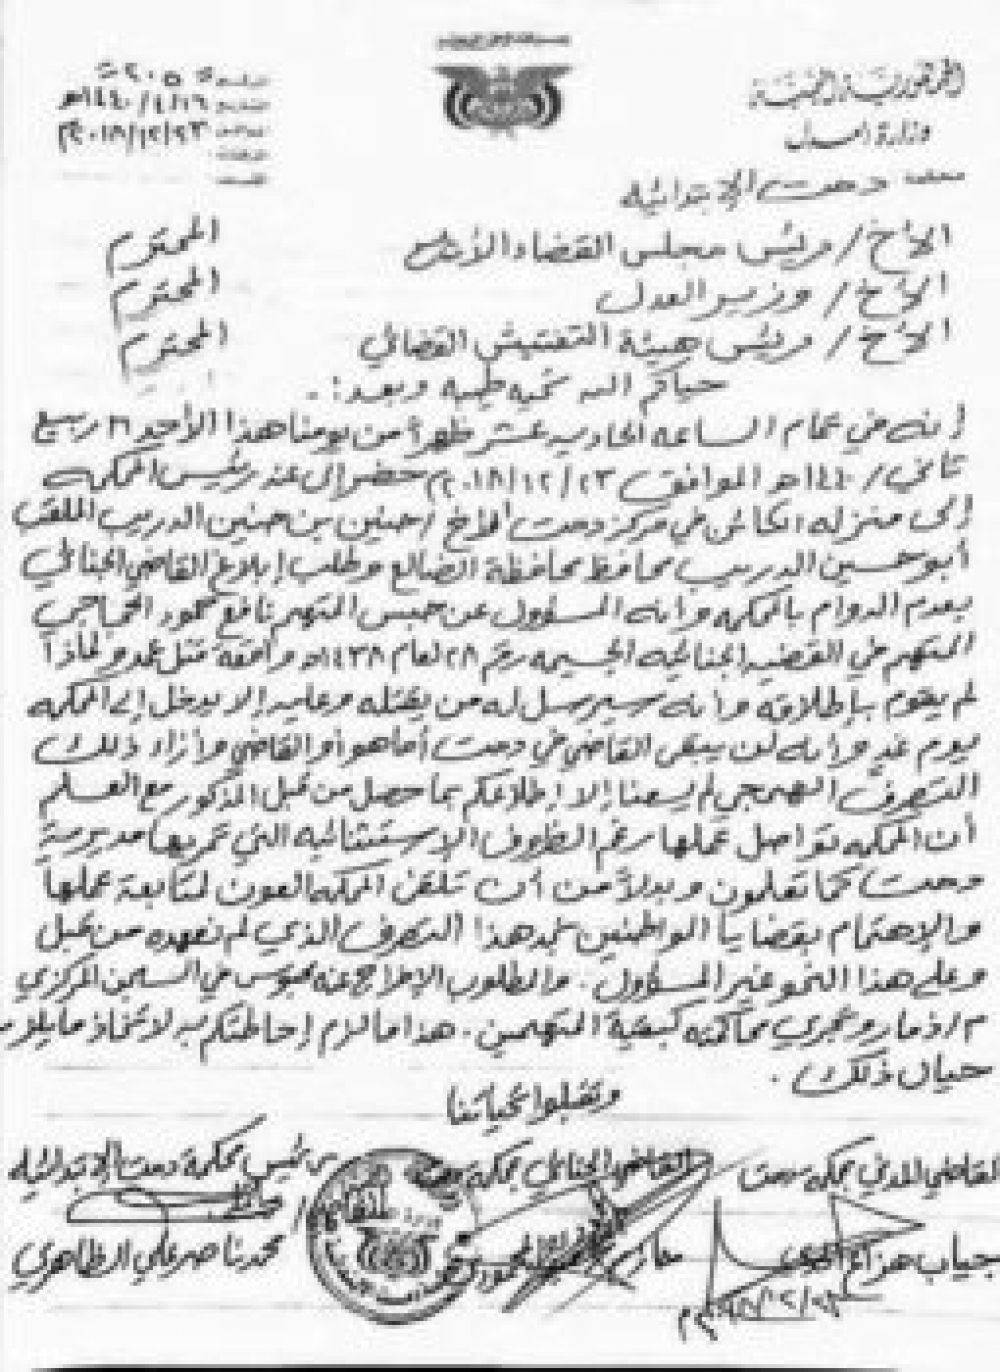 الجمهورية اليمنية
وزارة العدل
محكمة دمت الابتدائية
٢٠٥
١٤٤٠/٤/١٦هـ
٢٠١٨/١٢/٢٣م
الأخ / رئيس مجلس القضاء الأعلى المحترم
الأخ / وزير العدل المحترم
الأخ / رئيس هيئة التفتيش القضائي المحترم
حياكم الله تحيه طيبه وبعد :.
إنه في تمام الساعه الحاديه عشر ظهراً من يومنا هذا الأحد ١٦ ربيع
ثاني / ١٤٤٠هـ الموافق ٢٠١٨/١٢/٢٣م حضر إلى عند رئيس المحكمه
إلى منزله الكائن في مركز دمت الأخ / حنين بن حنين الدريب الملقب
أبو حسين الدريب محافظ محافظة الضالع وطلب إبلاغ القاضي الجنائي
بعدم الدوام بالمحكمه وانه المسؤول عن حبس المتهم نافع محمود الحجاجي
المتهم في القضيه الجنائيه الجسيمه رقم ٢٨ لعام ١٤٣٨هـ واقعة قتل عمد ولماذا
لم يقوم بإطلاقه وانه سيرسل له من يقتله وعليه الا يدخل إلى المحكمه
يوم غد وانه لن يبقى القاضي في دمت أما هو أو القاضي وأزاء ذلك
التصرف الهمجي لم يسعنا إلا إطلاعكم بما حصل من قبل المذكور مع العلم
أن المحكمه تواصل عملها رغم الظروف الإستثنائيه التي تمر بها مديرية
دمت كما تعلمون وبدلاً من أن تلقى المحكمه العون لمتابعة عملها
والإهتمام بقضايا المواطنين نجد هذا التصرف الذي لم نعهده من قبل
وعلى هذا النحو غير المسؤول . والمطلوب الإفراج عنه محبوس في السجن المركزي
م/ذمار وتجري محاكمته كبقية المتهمين . هذا ما لزم إحاطتكم به لاتخاذ ما يلزم
حيال ذلك .
وتقبلوا تحياتنا
القاضي المدني بمحكمة دمت القاضي الجنائي بمحكمة دمت رئيس محكمة دمت الابتدائيه
القاضي /
محمد ناصر علي الظاهري